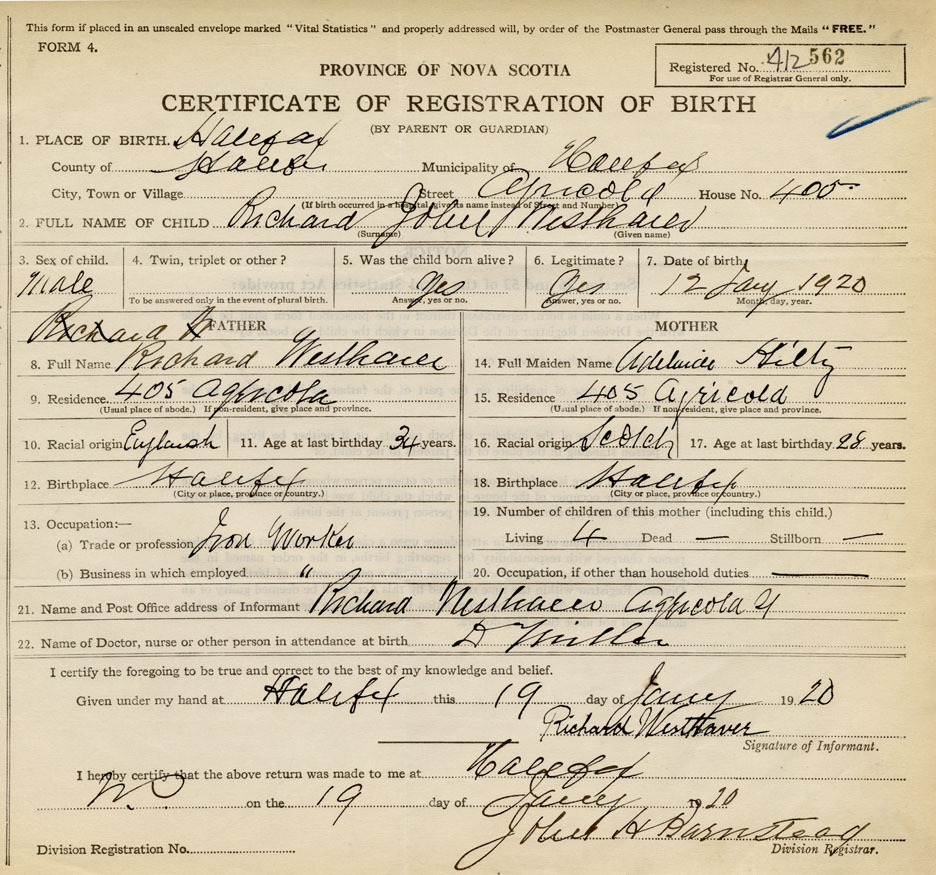 This form if placed in an unsealed envelope marked "Vital Statistics" and properly addressed will, by order of the Postmaster General pass through the Mails "FREE."
FORM 4.
Registered No. 412 562
For use of Registrar General only.
PROVINCE OF NOVA SCOTIA
CERTIFICATE OF REGISTRATION OF BIRTH
(BY PARENT OR GUARDIAN)
1. PLACE OF BIRTH. Halifax
County of Halifax Municipality of Halifax
City, Town or Village Street Agricola House No. 405
(If birth occurred in a hospital, give its name instead of Street and Number)
2. FULL NAME OF CHILD Richard John Westhaver
(Surname) (Given name)
3. Sex of child. 4. Twin, triplet or other? 5. Was the child born alive? 6. Legitimate? 7. Date of birth
Male Yes Yes 12 Jany 1920
To be answered only in the event of plural birth. Answer, yes or no. Answer, yes or no. Month, day, year.
Richard H FATHER MOTHER
8. Full Name Richard Westhaver 14. Full Maiden Name Adelaide Hiltz
9. Residence. 405 Agricola 15. Residence 405 Agricola
(Usual place of abode.) If non-resident, give place and province. (Usual place of abode.) If non-resident, give place and province.
10. Racial origin English 11. Age at last birthday 34 years. 16. Racial origin Scotch 17. Age at last birthday 28 years.
12. Birthplace Halifax 18. Birthplace Halifax
(City or place, province or country.) (City or place, province or country.)
13. Occupation:— 19. Number of children of this mother (including this child.)
(a) Trade or profession Iron Worker Living 4 Dead — Stillborn —
(b) Business in which employed " 20. Occupation, if other than household duties —
21. Name and Post Office address of Informant Richard Westhaver Agricola
22. Name of Doctor, nurse or other person in attendance at birth D Miller
I certify the foregoing to be true and correct to the best of my knowledge and belief.
Given under my hand at Halifax this 19 day of Jany 1920
Richard Westhaver
Signature of Informant.
I hereby certify that the above return was made to me at Halifax
on the 19 day of Jany 1920
John H Barnstead
Division Registration No. Division Registrar.